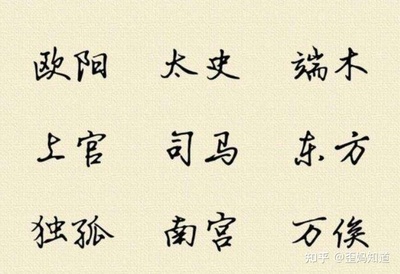 欧阳 太史 端木
上官 司马 东方
独孤 南宫 万俟
知乎 @歪妈知道